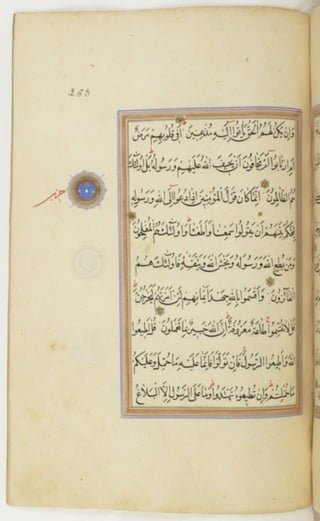 وَإِنْ يَكُنْ لَهُمُ الْحَقُّ يَأْتُوا إِلَيْهِ مُذْعِنِينَ أَفِي قُلُوبِهِمْ مَرَضٌ
أَمِ ارْتَابُوا أَمْ يَخَافُونَ أَنْ يَحِيفَ اللهُ عَلَيْهِمْ وَرَسُولُهُ بَلْ أُولَئِكَ
هُمُ الظَّالِمُونَ إِنَّمَا كَانَ قَوْلَ الْمُؤْمِنِينَ إِذَا دُعُوا إِلَى اللهِ وَرَسُولِهِ
لِيَحْكُمَ بَيْنَهُمْ أَنْ يَقُولُوا سَمِعْنَا وَأَطَعْنَا وَأُولَئِكَ هُمُ الْمُفْلِحُونَ
وَمَنْ يُطِعِ اللهَ وَرَسُولَهُ وَيَخْشَ اللهَ وَيَتَّقْهِ فَأُولَئِكَ هُمُ
الْفَائِزُونَ وَأَقْسَمُوا بِاللهِ جَهْدَ أَيْمَانِهِمْ لَئِنْ أَمَرْتَهُمْ لَيَخْرُجُنَّ
قُلْ لَا تُقْسِمُوا طَاعَةٌ مَعْرُوفَةٌ إِنَّ اللهَ خَبِيرٌ بِمَا تَعْمَلُونَ قُلْ أَطِيعُوا
اللهَ وَأَطِيعُوا الرَّسُولَ فَإِنْ تَوَلَّوْا فَإِنَّمَا عَلَيْهِ مَا حُمِّلَ وَعَلَيْكُمْ
مَا حُمِّلْتُمْ وَإِنْ تُطِيعُوهُ تَهْتَدُوا وَمَا عَلَى الرَّسُولِ إِلَّا الْبَلَاغُ
حزب